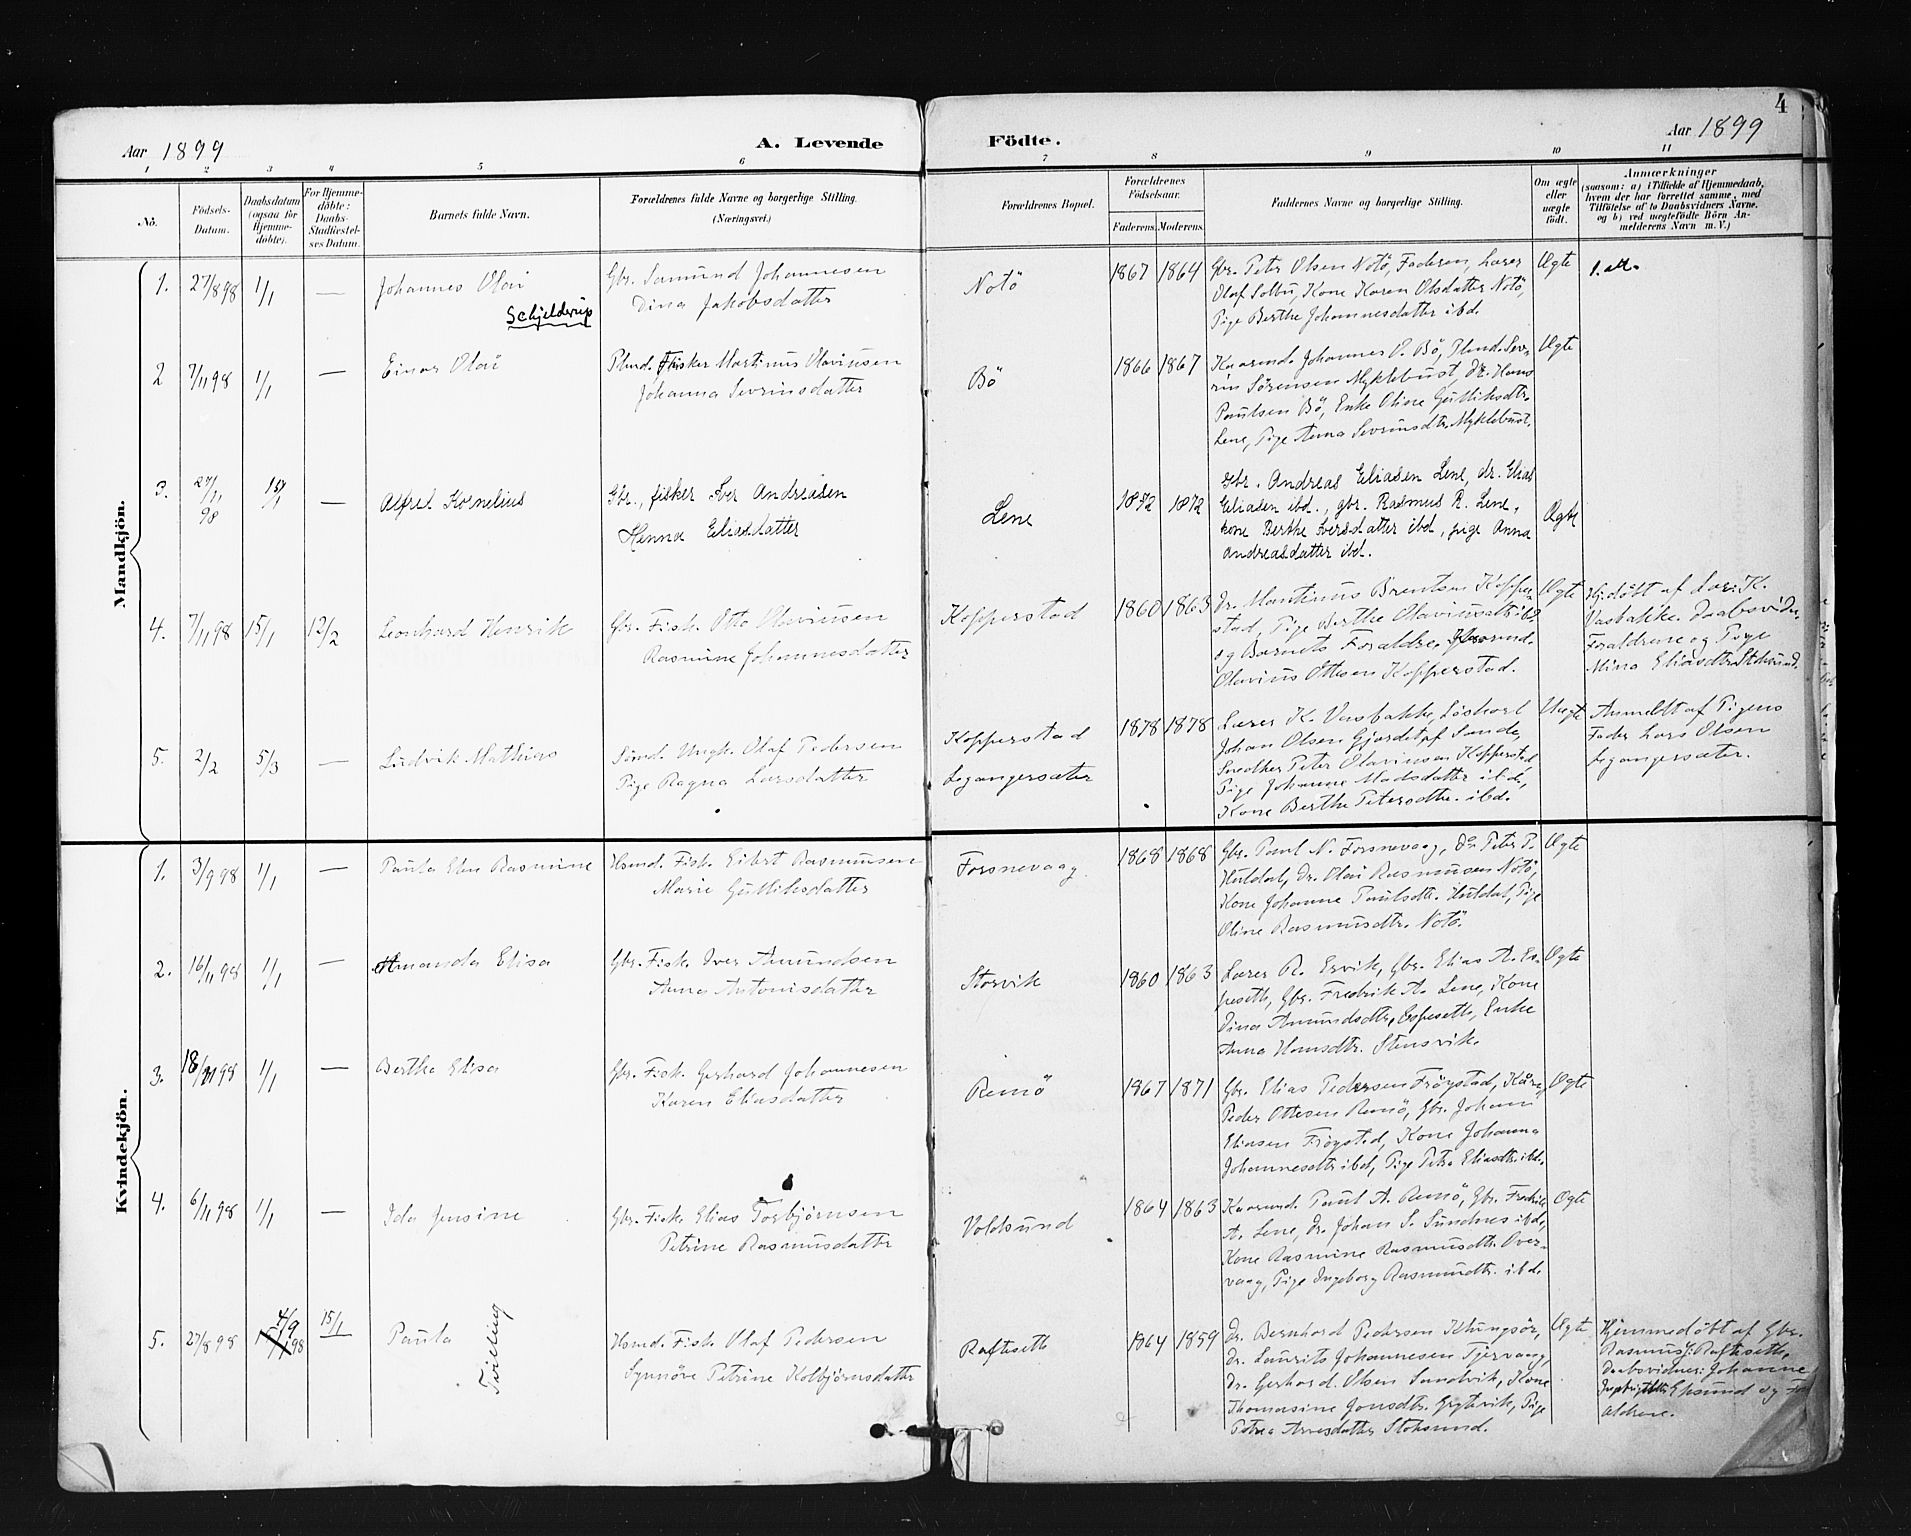 4
Aar 1899
A. Levende
Födte.
Aar 1899
1 2 3 4 5 6 7 8 9 10 11
No.
Födsels-Datum.
Daabsdatum (ogsaa för Hjemme-döbte).
For Hjemme-döbte: Daabs-Stadfæstel-ses Datum.
Barnets fulde Navn.
Forældrenes fulde Navne og borgerlige Stilling.
(Næringsvei.)
Forældrenes Bopæl.
Forældrenes Födselsaar.
Faderens. Moderens.
Faddernes Navne og borgerlige Stilling.
Om ægte eller uægte födt.
Anmærkninger
(saasom: a) i Tilfælde af Hjemmedaab,
hvem der har forrettet samme, med
Tilföielse af to Daabsvidners Navne,
og b) ved uegtefödte Börn An-
melderens Navn m. V.)
Mandkjön.
1. 27/8 98 1/1 — Johannes Olai
Schjelderup
Gbr. Samund Johannesen
Dina Jakobsdatter
Notö
1867 1864
Gbr. Peter Olsen Notö, Faderen, Lærer
Olaf Solbu, Kone Karen Olsdatter Notö,
Pige Berthe Johannesdatter ibd.
Ægte
2 7/11 98 1/1 — Einar Olai
Fisker Martinus Olaviusen
Johanna Sevrinsdatter
Bö
1866 1867
Kaarmd. Johannes O. Bö, Hmd. Sev-
rin Sörensen Myklebust, dr. Hans
Paulsen Bö, Enke Oline Gulliksdtr.
Lene, Pige Anna Sevrinsdtr. Myklebust.
Ægte
3. 27/11 98 — Alfred Kornelius
Gbr., fisker Iver Andreasen
Henna Eliasdatter
Lene
1872 1872
Gbr. Andreas Eliasen Lene, dr. Elias
Eliasen ibd., gbr. Rasmus R. Lene,
kone Berthe Iversdatter ibd, pige Anna
Andreasdatter ibd.
Ægte
4. 7/11 98 15/1 12/2 Leonhard Henrik
Gbr. Fisk. Otto Olaviusen
Rasmine Johannesdatter
Kopperstad
1860 1863
dr. Martinus Berntsen Kopper-
stad, Pige Berthe Olaviusdtr ibd
og Barnets Foraldre, Kaarmd.
Olavius Ottesen Kopperstad.
Ægte
Hjdöbt af Lær. K.
Vasbakke. Daabsvidn.
Foraldrene og Pige
Mina Eliasdtr. Stoksund.
5. 2/2 5/3 — Ludvik Mathias
Ungk. Olaf Pedersen
Pige Ragna Larsdatter
Kopperstad
Legangersæter
1878 1878
Lærer K. Vasbakke, Löskarl
Johan Olsen Gjerdet pf Sande,
Snedker Peter Olaviusen Kopperstad
Pige Johanne Madsdatter ibd,
Kone Berthe Petersdtr. ibd.
Uægte
Anmeldt af Pigens
Fader Lars Olsen
Legangersæter.
Kvindekjön.
1. 3/9 98 1/1 — Paula Elen Rasmine
Hsmd. Fisk. Eibert Rasmussen
Marie Gulliksdatter
Forsnevaag
1868 1868
Gbr. Paul N. Forsnevaag, do Peter P.
Huldal, dr. Olai Rasmusen Notö,
Kone Johanne Paulsdtr. Huldal, Pige
Oline Rasmusdtr. Notö.
Ægte
2. 16/11 98 1/1 — Amanda Elisa
Gbr. Fisk. Iver Amundsen
Anna Antonisdatter
Storvik
1860 1863
Lærer R. Ervik, Gbr. Elias A. Es-
peseth, Gbr. Fredrik A. Lene, Kone
Dina Amundsdtr. Espeseth, Enke
Anna Hansdtr. Stensvik.
Ægte
3. 18/11 98 1/1 — Berthe Elisa
Gbr. Fisk. Gerhard Johannesen
Karen Eliasdatter
Remö
1867 1871
Gbr. Elias Pedersen Fröystad,
Peder Ottesen Remö, Gbr. Johan
Eliasen Fröystad, Kone Johanna
Johannesdtr ibd, Pige Petra Eliasdtr ibd.
Ægte
4. 6/11 98 1/1 — Ida Jensine
Gbr. Fisk. Elias Torbjörnsen
Petrine Rasmusdatter
Voldsund
1864 1863
Kaarmd. Paul A. Remö, Gbr. Fredrik
A. Lene, dr. Johan S. Sundnes ibd.,
Kone Rasmine Rasmusdtr. Over-
vaag, Pige Ingeborg Rasmusdtr. ibd.
Ægte
5. 27/8 98 4/9 98 15/1 Paula
Tvilling
Hsmd. Fisk. Olaf Pedersen
Synnöve Petrine Kolbjörnsdatter
Rafteseth
1864 1859
dr. Bernhard Pedersen Klungsör,
dr. Laurits Johannesen Tjervaag,
dr. Gerhard Olsen Sandvik, Kone
Thomasine Jonsdtr. Grytvik, Pige
Petra Arnesdatter Stoksund.
Ægte
Hjemmedöbt af Gbr.
Rasmus J. Rafteseth,
Daabsvidner: Johanne
Eksund og For-
ældrene.